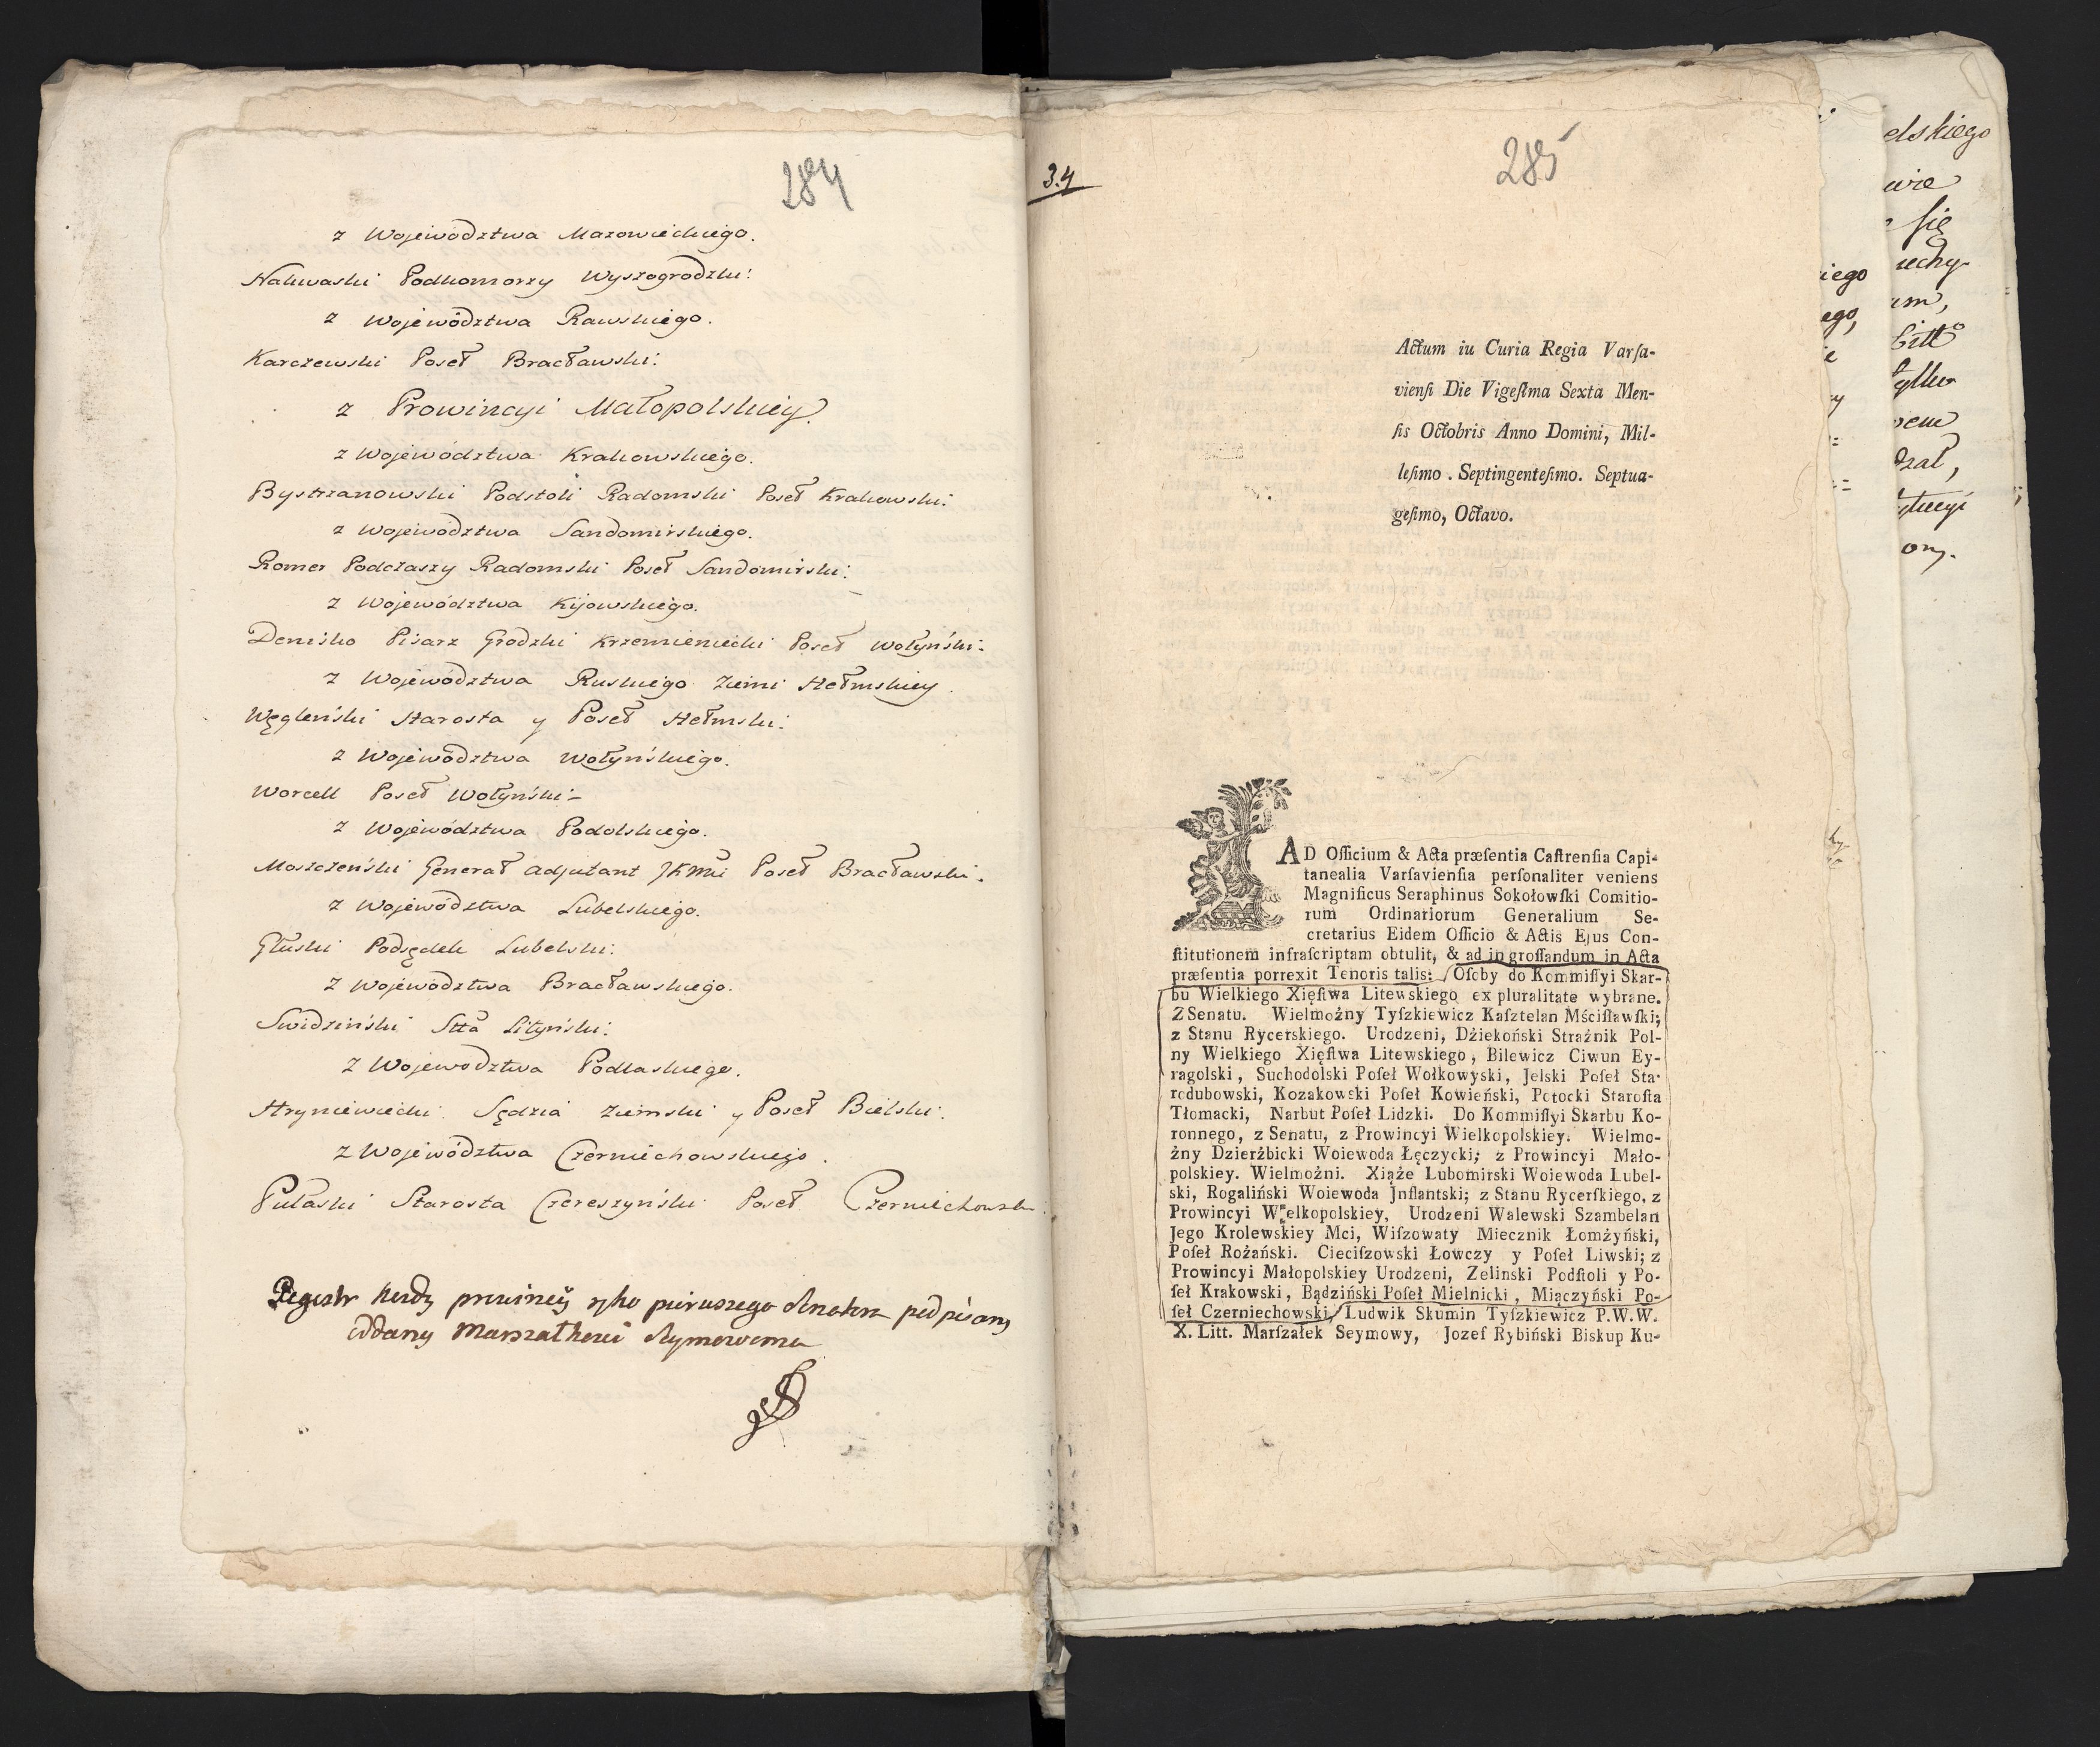 284
z Wojewodztwa Mazowieckiego.
Nakwaski Podkomorzy Wyszogrodzki:
z Wojewodztwa Rawskiego.
Karczewski Poseł Bracławski:
z Prowincyi Małopolskiey.
z Wojewodztwa Krakowskiego.
Bystrzanowski Podstoli Radomski Poseł Krakowski:
z Wojewodztwa Sandomirskiego.
Romer Podczaszy Radomski Poseł Sandomirski:
z Wojewodztwa Kijowskiego.
Denisko Pisarz Grodzki Krzemieniecki Poseł Wołyński:
z Wojewodztwa Ruskiego Ziemi Hełmskiey.
Węgleński Starosta y Poseł Hełmski:
z Wojewodztwa Wołyńskiego.
Worcell Poseł Wołyński:
z Wojewodztwa Podolskiego.
Moszczeński Generał Adjutant JKMci Poseł Bracławski:
z Wojewodztwa Lubelskiego.
Głuski Podsędek Lubelski:
z Wojewodztwa Bracławskiego.
Swidziński Stta Lityński:
z Wojewodztwa Podlaskiego.
Hryniewiecki Sędzia Ziemski y Poseł Bielski:
z Wojewodztwa Czerniechowskiego.
Pułaski Starosta Czereszyński Poseł Czerniechowski:
Regestr kazdy prowincij ręko pierwszego Senatora podpisany
oddany Marszałkowi Seymowemu
3.4
285
Actum iu Curia Regia Varſa-
vienſi Die Vigeſima Sexta Men-
ſis Octobris Anno Domini, Mil-
leſimo . Septingenteſimo. Septua-
geſimo, Octavo.
AD Officium & Acta præſentia Caſtrenſia Capi-
tanealia Varſavienſia perſonaliter veniens
Magnificus Seraphinus Sokołowſki Comitio-
rum Ordinariorum Generalium Se-
cretarius Eidem Officio & Actis Ejus Con-
ſtitutionem infraſcriptam obtulit, & ad ingroſſandum in Acta
præſentia porrexit Tenoris talis: Oſoby do Kommiſſyi Skar-
bu Wielkiego Xięſtwa Litewskiego ex pluralitate wybrane.
Z Senatu. Wielmożny Tyſzkiewicz Kaſztelan Mściſławſki;
z Stanu Rycerskiego. Urodzeni, Dźiekoński Strażnik Pol-
ny Wielkiego Xięſtwa Litewskiego, Bilewicz Ciwun Ey-
ragolski, Suchodolski Poſeł Wołkowyski, Jelski Poſeł Sta-
rodubowski, Kozakowski Poſeł Kowieński, Potocki Staroſta
Tłomacki, Narbut Poſeł Lidzki. Do Kommiſſyi Skarbu Ko-
ronnego, z Senatu, z Prowincyi Wielkopolskiey. Wielmo-
żny Dzierżbicki Woiewoda Łęczycki; z Prowincyi Mało-
polskiey. Wielmożni. Xiąże Lubomirski Woiewoda Lubel-
ski, Rogaliński Woiewoda Jnflantski; z Stanu Rycerſkiego, z
Prowincyi Wielkopolskiey, Urodzeni Walewski Szambelan
Jego Krolewskiey Mci, Wiſzowaty Miecznik Łomżyński,
Poſeł Rożański. Cieciſzowski Łowczy y Poſeł Liwski; z
Prowincyi Małopolskiey Urodzeni, Zelinski Podſtoli y Po-
ſeł Krakowski, Bądziński Poſeł Mielnicki, Miączyński Po-
ſeł Czerniechowski, Ludwik Skumin Tyſzkiewicz P.W.W.
X. Litt. Marſzałek Seymowy, Jozef Rybiński Biskup Ku-
elskiego
się
iego
ego,